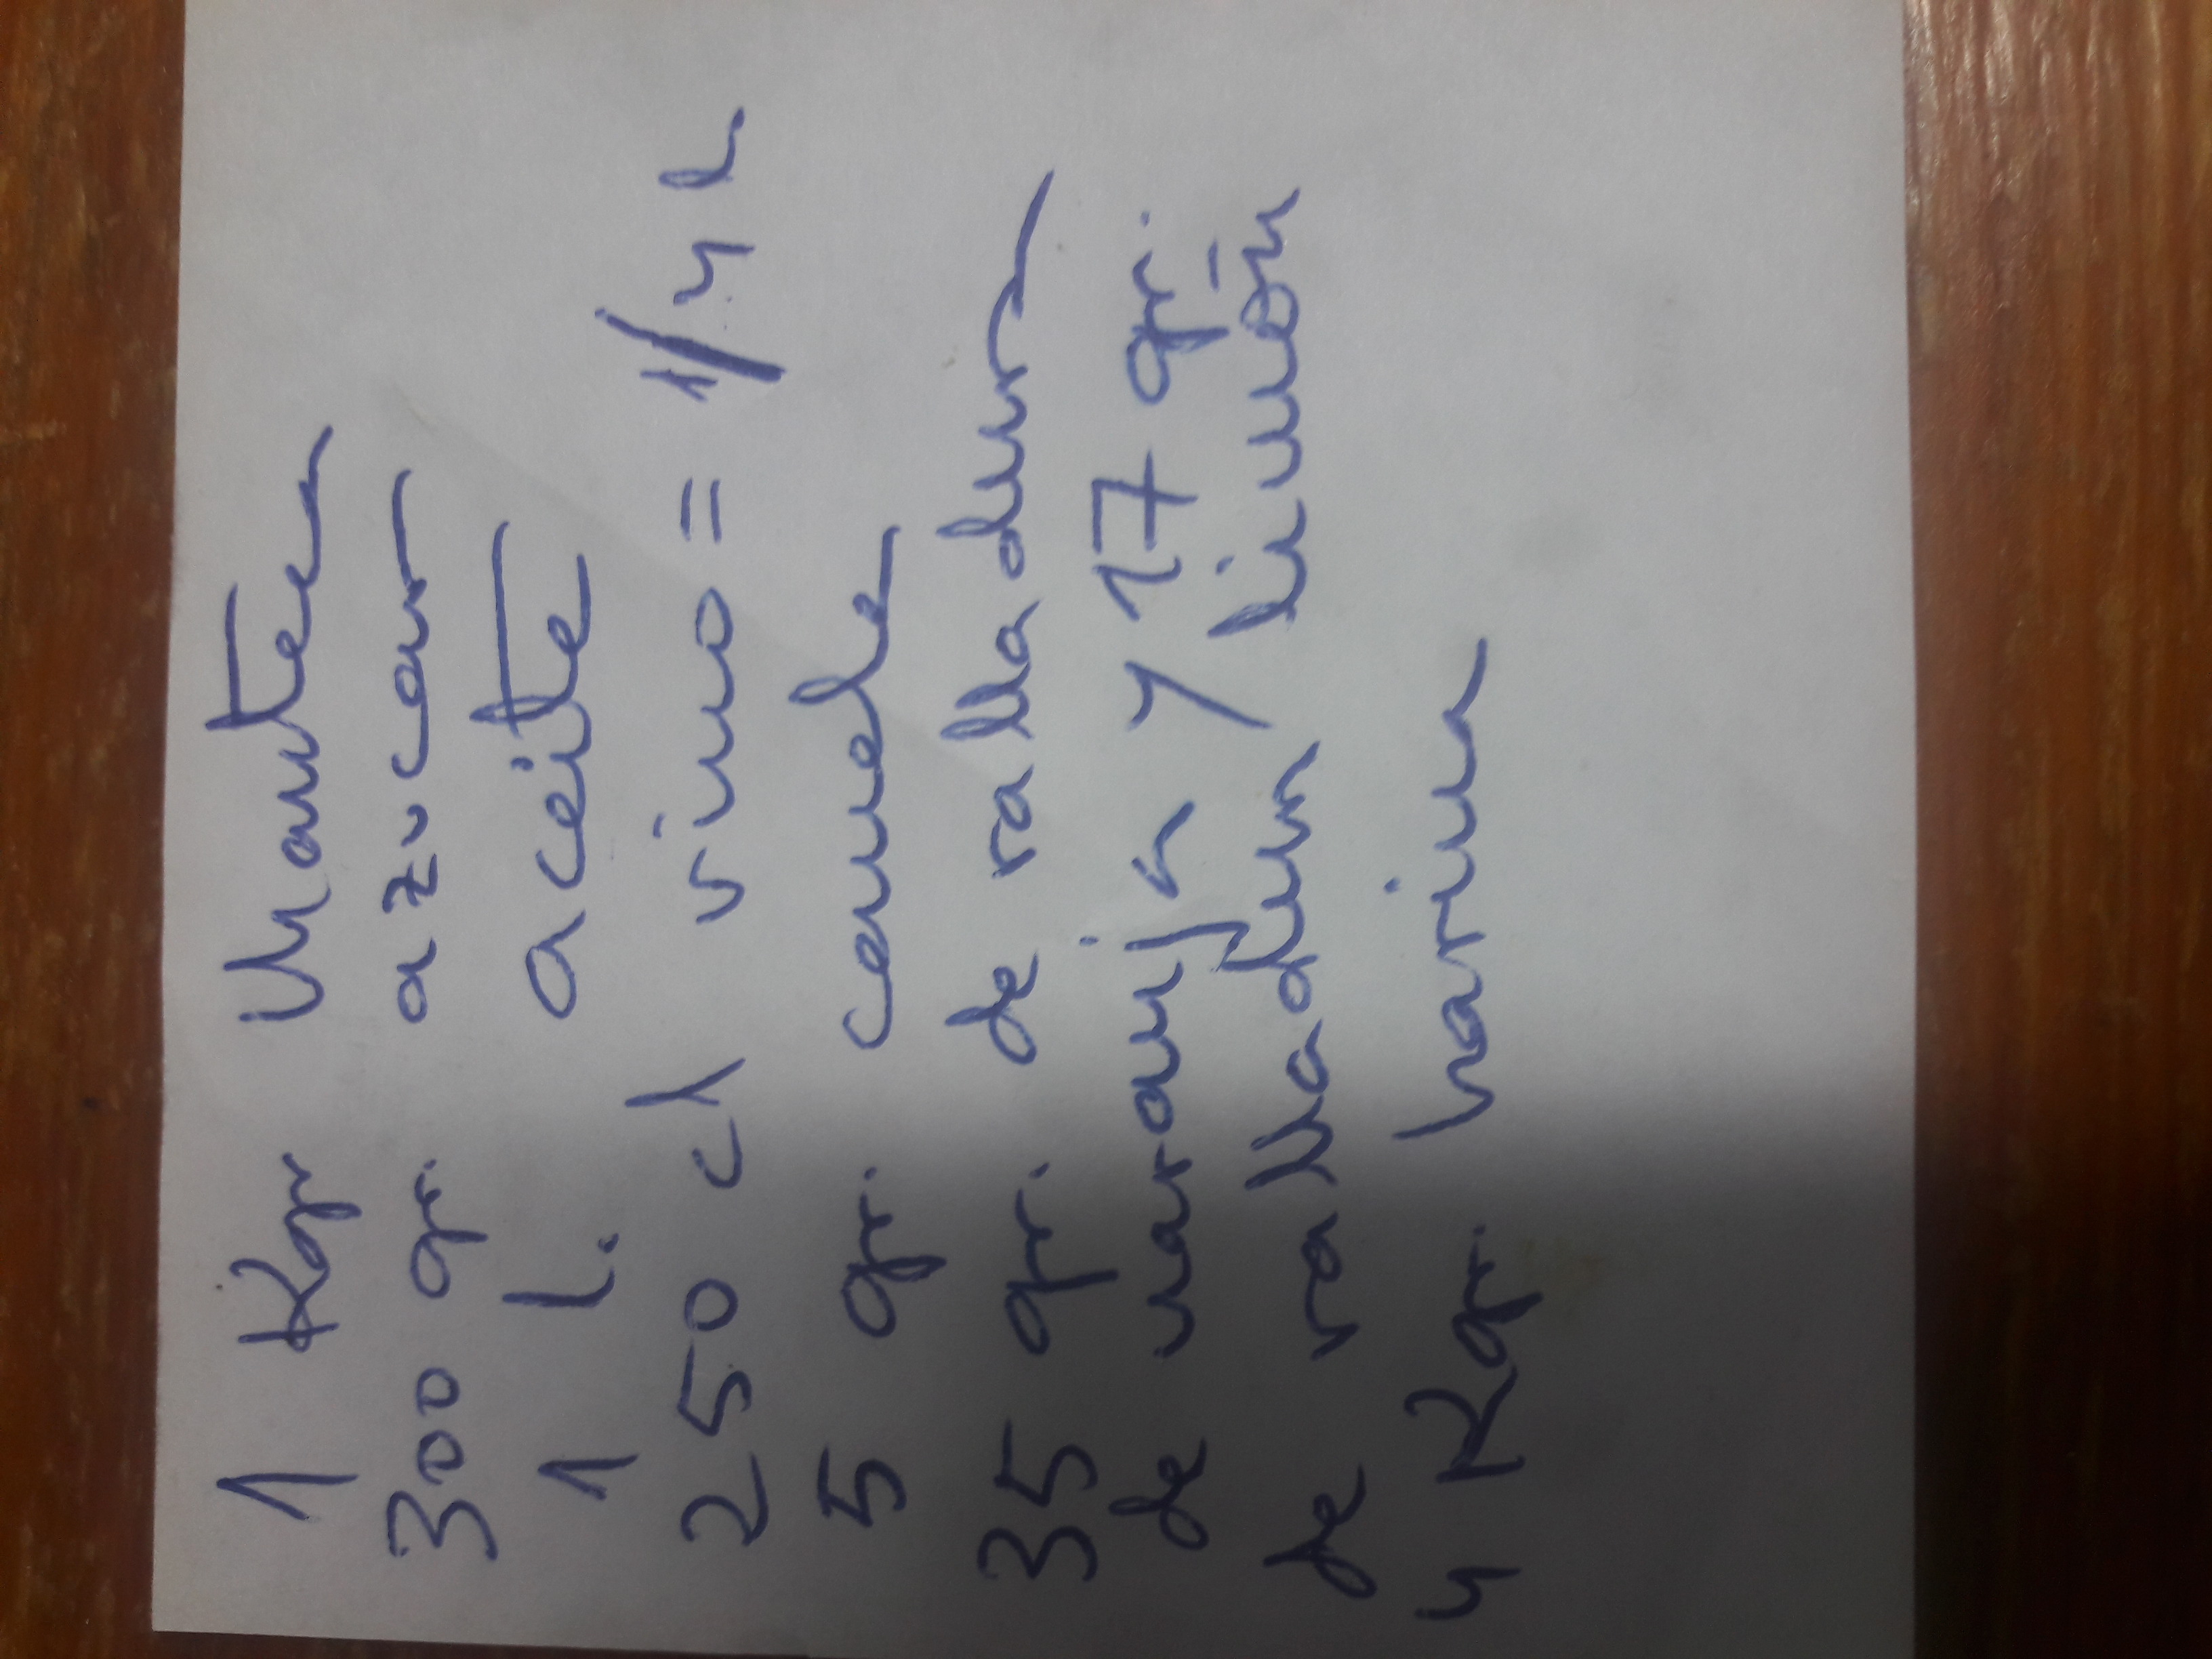 1 Kgr Manteca
300 gr. azucar
1 l. aceite
250 cl vino = 1/4 l
5 gr. canela
35 gr. de ralladura
de naranja y 17 gr.
de ralladura limón
4 Kgr. harina